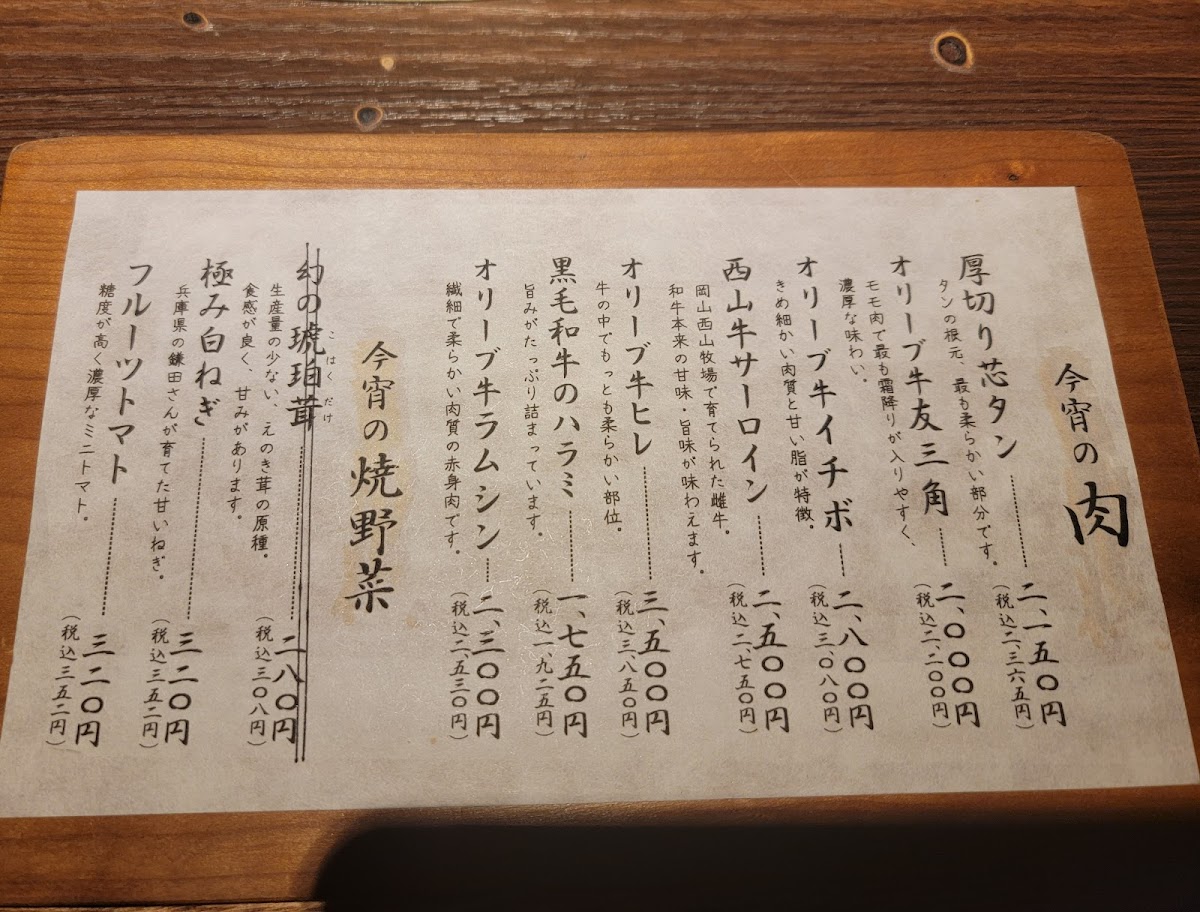 今宵の肉
厚切り芯タン 二、一五〇円
タンの根元、最も柔らかい部分です。
(税込二、三六五円)
オリーブ牛友三角 二、〇〇〇円
モモ肉で最も霜降りが入りやすく、
濃厚な味わい。
(税込二、二〇〇円)
オリーブ牛イチボ 二、八〇〇円
きめ細かい肉質と甘い脂が特徴。
(税込三、〇八〇円)
西山牛サーロイン 二、五〇〇円
岡山西山牧場で育てられた雌牛。
和牛本来の甘味・旨味が味わえます。
(税込二、七五〇円)
オリーブ牛ヒレ 三、五〇〇円
牛の中でもっとも柔らかい部位。
(税込三、八五〇円)
黒毛和牛のハラミ 一、七五〇円
旨みがたっぷり詰まっています。
(税込一、九二五円)
オリーブ牛ラムシン 二、三〇〇円
繊細で柔らかい肉質の赤身肉です。
(税込二、五三〇円)
今宵の焼野菜
こはくだけ
幻の琥珀茸 二八〇円
生産量の少ない、えのき茸の原種。
食感が良く、甘みがあります。
(税込三〇八円)
極み白ねぎ 三二〇円
兵庫県の鎌田さんが育てた甘いねぎ。
(税込三五二円)
フルーツトマト 三二〇円
糖度が高く濃厚なミニトマト。
(税込三五二円)